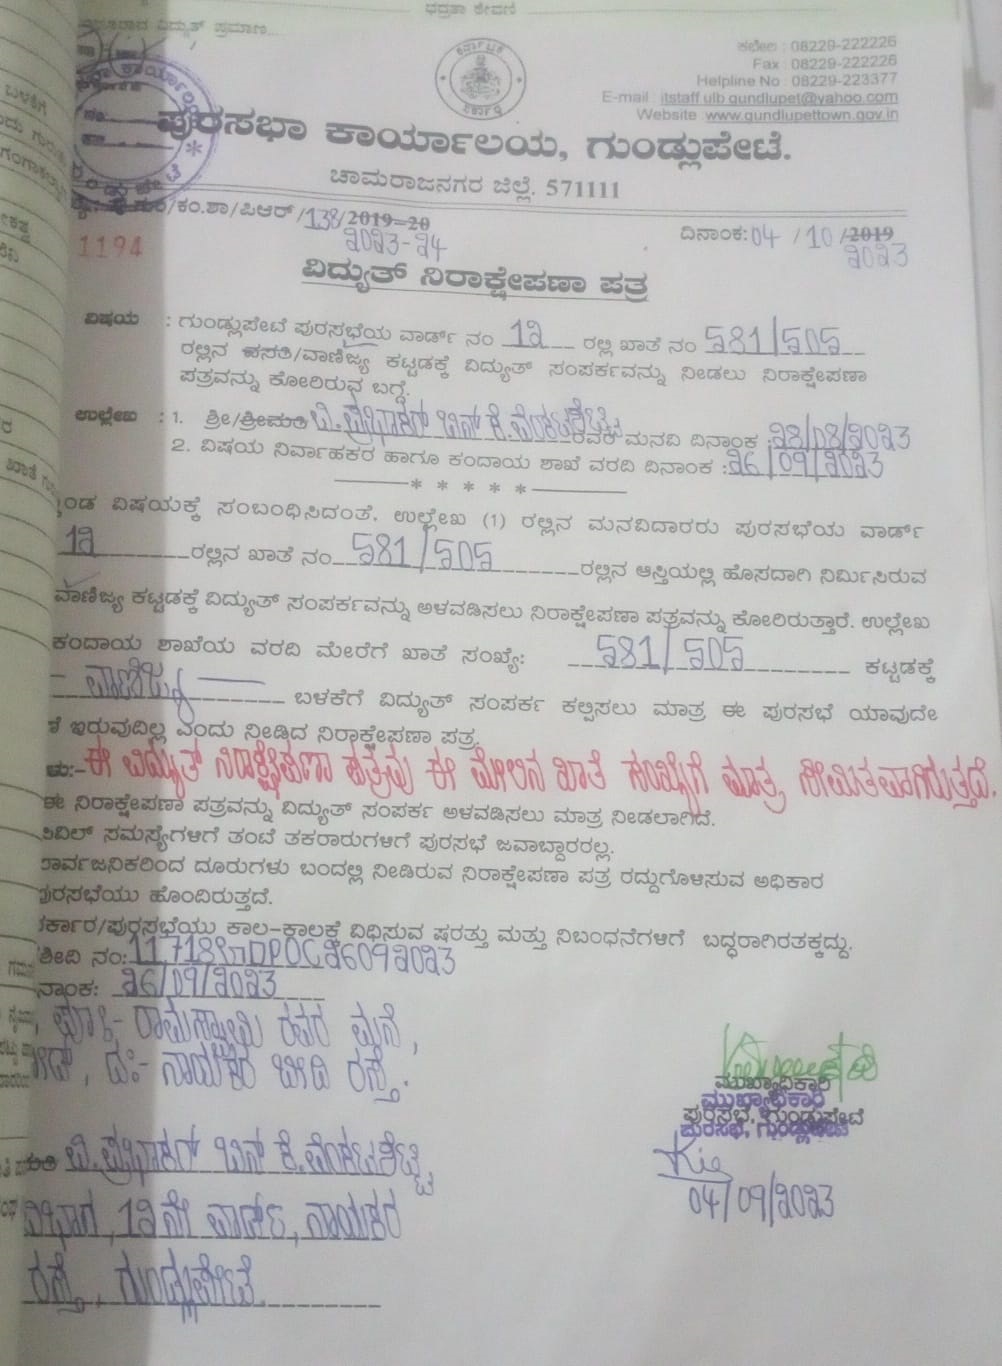 ಭದ್ರತಾ ಠೇವಣಿ
ವಿದ್ಯುತ್ ಪ್ರಮಾಣ
ಕಛೇರಿ : 08229-222226
Fax : 08229-222226
Helpline No : 08229-223377
E-mail : itstaff ulb gundlupet@yahoo.com
Website www.gundlupettown.gov.in
ಪುರಸಭಾ ಕಾರ್ಯಾಲಯ, ಗುಂಡ್ಲುಪೇಟೆ.
ಚಾಮರಾಜನಗರ ಜಿಲ್ಲೆ. 571111
ಗುಪು/ಕಂ.ಶಾ/ಪಿಆರ್/138/2019-20
2023-24
ದಿನಾಂಕ:04/10/2019
2023
1194
ವಿದ್ಯುತ್ ನಿರಾಕ್ಷೇಪಣಾ ಪತ್ರ
ವಿಷಯ : ಗುಂಡ್ಲುಪೇಟೆ ಪುರಸಭೆಯ ವಾರ್ಡ್ ನಂ 12 ರಲ್ಲಿ ಖಾತೆ ನಂ 581/505
ರಲ್ಲಿನ ವಸತಿ/ವಾಣಿಜ್ಯ ಕಟ್ಟಡಕ್ಕೆ ವಿದ್ಯುತ್ ಸಂಪರ್ಕವನ್ನು ನೀಡಲು ನಿರಾಕ್ಷೇಪಣಾ
ಪತ್ರವನ್ನು ಕೋರಿರುವ ಬಗ್ಗೆ.
ಉಲ್ಲೇಖ : 1. ಶ್ರೀ/ಶ್ರೀಮತಿ ವಿ.ಪ್ರಭಾಕರ್ ಬಿನ್ ಕೆ.ವೆಂಕಟಶೆಟ್ಟಿ ರವರ ಮನವಿ ದಿನಾಂಕ :28/08/2023
2. ವಿಷಯ ನಿರ್ವಾಹಕರ ಹಾಗೂ ಕಂದಾಯ ಶಾಖೆ ವರದಿ ದಿನಾಂಕ :26/09/2023
* * * * *
ವಿಷಯಕ್ಕೆ ಸಂಬಂಧಿಸಿದಂತೆ, ಉಲ್ಲೇಖ (1) ರಲ್ಲಿನ ಮನವಿದಾರರು ಪುರಸಭೆಯ ವಾರ್ಡ್
12 ರಲ್ಲಿನ ಖಾತೆ ನಂ 581/505 ರಲ್ಲಿನ ಆಸ್ತಿಯಲ್ಲಿ ಹೊಸದಾಗಿ ನಿರ್ಮಿಸಿರುವ
ವಾಣಿಜ್ಯ ಕಟ್ಟಡಕ್ಕೆ ವಿದ್ಯುತ್ ಸಂಪರ್ಕವನ್ನು ಅಳವಡಿಸಲು ನಿರಾಕ್ಷೇಪಣಾ ಪತ್ರವನ್ನು ಕೋರಿರುತ್ತಾರೆ. ಉಲ್ಲೇಖ
ಕಂದಾಯ ಶಾಖೆಯ ವರದಿ ಮೇರೆಗೆ ಖಾತೆ ಸಂಖ್ಯೆ: 581/505 ಕಟ್ಟಡಕ್ಕೆ
ವಾಣಿಜ್ಯ ಬಳಕೆಗೆ ವಿದ್ಯುತ್ ಸಂಪರ್ಕ ಕಲ್ಪಿಸಲು ಮಾತ್ರ ಈ ಪುರಸಭೆ ಯಾವುದೇ
ಇರುವುದಿಲ್ಲ ಎಂದು ನೀಡಿದ ನಿರಾಕ್ಷೇಪಣಾ ಪತ್ರ.
ಈ ವಿದ್ಯುತ್ ನಿರಾಕ್ಷೇಪಣಾ ಪತ್ರವು ಈ ಮೇಲಿನ ಖಾತೆ ಸಂಖ್ಯೆಗೆ ಮಾತ್ರ ಸೀಮಿತವಾಗಿರುತ್ತದೆ.
ಈ ನಿರಾಕ್ಷೇಪಣಾ ಪತ್ರವನ್ನು ವಿದ್ಯುತ್ ಸಂಪರ್ಕ ಅಳವಡಿಸಲು ಮಾತ್ರ ನೀಡಲಾಗಿದೆ.
ಸಿವಿಲ್ ಸಮಸ್ಯೆಗಳಿಗೆ ತಂಟೆ ತಕರಾರುಗಳಿಗೆ ಪುರಸಭೆ ಜವಾಬ್ದಾರರಲ್ಲ.
ಸಾರ್ವಜನಿಕರಿಂದ ದೂರುಗಳು ಬಂದಲ್ಲಿ ನೀಡಿರುವ ನಿರಾಕ್ಷೇಪಣಾ ಪತ್ರ ರದ್ದುಗೊಳಿಸುವ ಅಧಿಕಾರ
ಪುರಸಭೆಯು ಹೊಂದಿರುತ್ತದೆ.
ಸರ್ಕಾರ/ಪುರಸಭೆಯು ಕಾಲ-ಕಾಲಕ್ಕೆ ವಿಧಿಸುವ ಷರತ್ತು ಮತ್ತು ನಿಬಂಧನೆಗಳಿಗೆ ಬದ್ಧರಾಗಿರತಕ್ಕದ್ದು.
ನಂ:
26/09/2023
ರಾಮಸ್ವಾಮಿ ರವರ ಮನೆ,
ದ:- ನಾಯಕರ ಬೀದಿ ರಸ್ತೆ.
ಮುಖ್ಯಾಧಿಕಾರಿ
ಮುಖ್ಯಾಧಿಕಾರಿ
ಪುರಸಭೆ, ಗುಂಡ್ಲುಪೇಟೆ
ಪುರಸಭೆ, ಗುಂಡ್ಲುಪೇಟೆ
04/09/2023
ವಿ.ಪ್ರಭಾಕರ್ ಬಿನ್ ಕೆ.ವೆಂಕಟಶೆಟ್ಟಿ
12ನೇ ವಾರ್ಡ್, ನಾಯಕರ
ರಸ್ತೆ, ಗುಂಡ್ಲುಪೇಟೆ